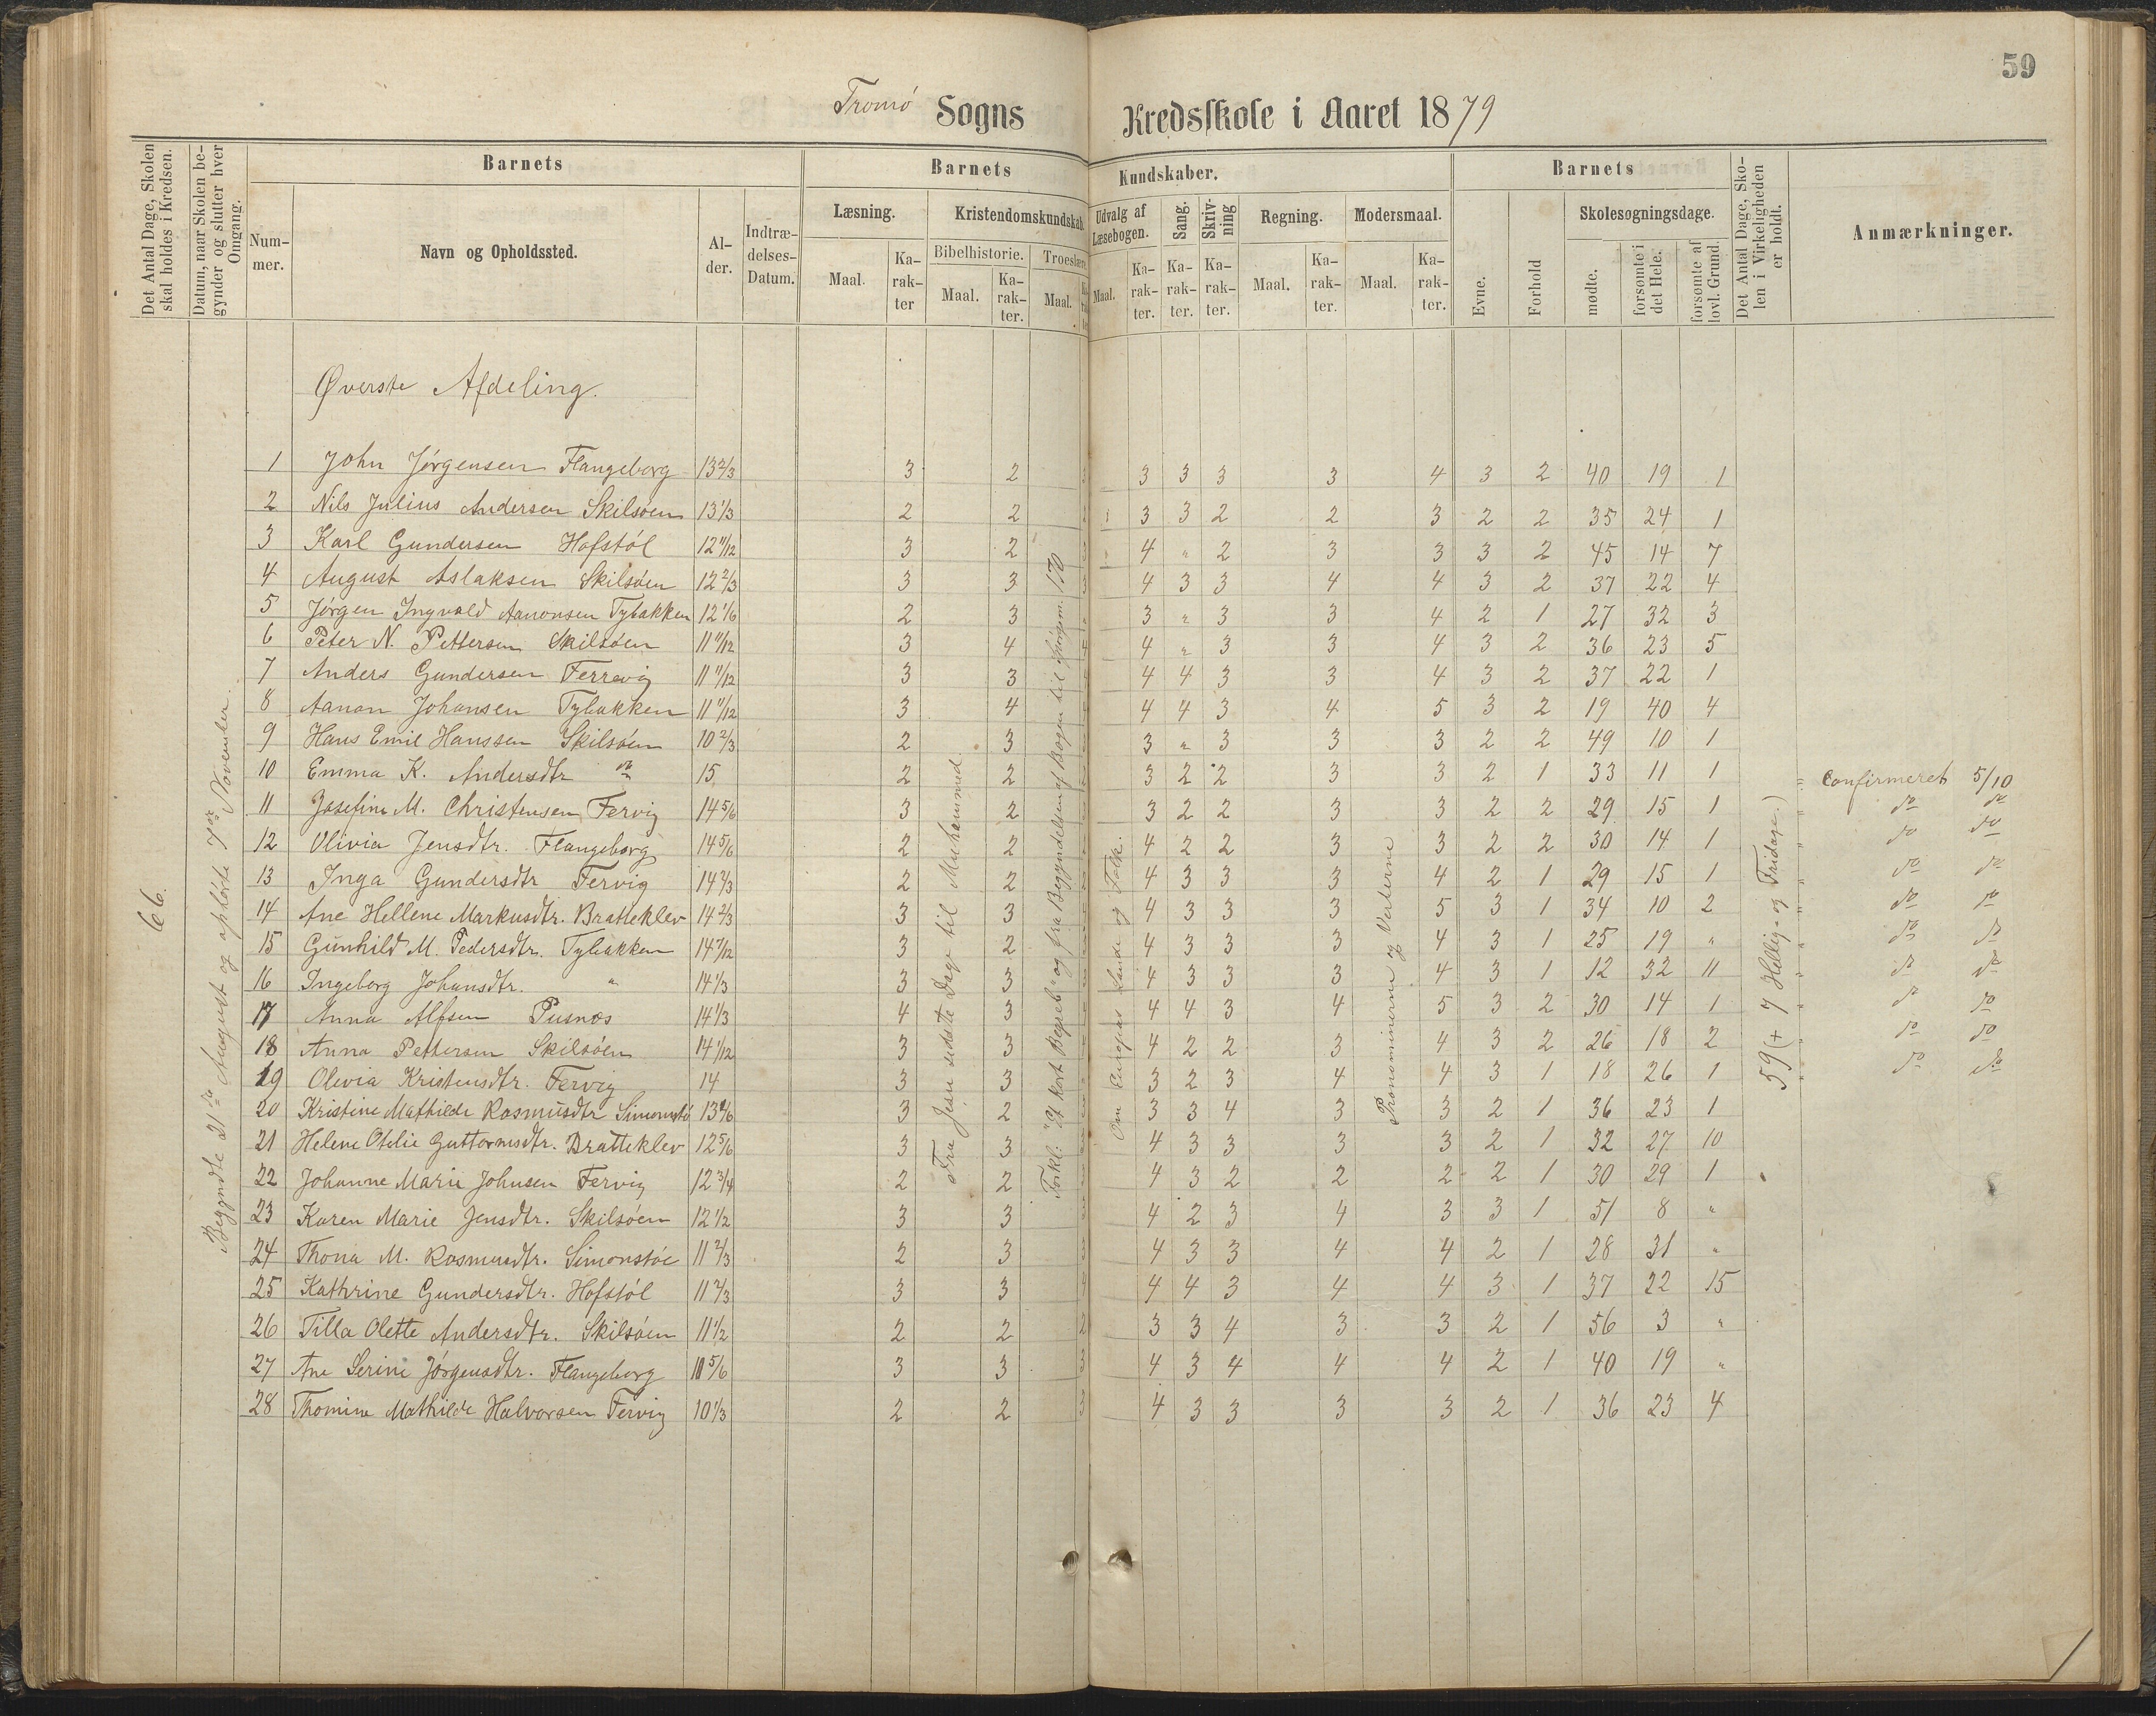 59
Tromø Sogns Kredsskole i Aaret 1879
Det Antal Dage, Skolen skal holdes i Kredsen.
Datum, naar Skolen begynder og slutter hver Omgang.
Barnets
Num-mer.
Navn og Opholdssted.
Al-der.
Indtræ-delses-Datum.
Barnets Kundskaber.
Læsning.
Maal. Ka-rak-ter
Kristendomskundskab.
Bibelhistorie. Troeslære.
Maal. Ka-rak-ter. Maal.
Udvalg af Læsebogen.
Maal. Ka-rak-ter.
Sang. Ka-rak-ter.
Skriv-ning Ka-rak-ter.
Regning.
Maal. Ka-rak-ter.
Modersmaal.
Maal. Ka-rak-ter.
Barnets
Evne.
Forhold
Skolesøgningsdage.
mødte.
forsømte i det Hele.
forsømte af lovl. Grund.
Det Antal Dage, Sko-len i Virkeligheden er holdt.
Anmærkninger.
66.
Begyndte 21de August og ophørte 7de November.
Øverste Afdeling.
1 John Jørgensen Flangeborg 13 2/3 3 2 3 3 3 3 3 4 3 2 40 19 1
2 Nils Julius Andersen Skilsøen 13 1/3 2 2 3 3 2 2 3 2 2 35 24 1
3 Karl Gundersen Hofstøl 12 11/12 3 2 4 " 2 3 3 3 2 45 14 7
4 August Aslaksen Skilsøen 12 2/3 3 3 3 4 3 3 4 4 3 2 37 22 4
5 Jørgen Ingvald Aanonsen Tybakken 12 1/6 2 3 3 " 3 3 4 2 1 27 32 3
6 Peter N. Pettersen Skilsøen 11 11/12 3 4 4 4 " 3 3 4 3 2 36 23 5
7 Anders Gundersen Ferrevig 11 11/12 3 3 4 4 3 3 4 3 2 37 22 1
8 Aanon Johansen Tybakken 11 11/12 3 4 4 4 3 4 5 3 2 19 40 4
9 Hans Emil Hanssen Skilsøen 10 2/3 2 3 3 " 3 3 3 2 2 49 10 1
10 Emma K. Andersdtr do 15 2 2 3 2 2 3 3 2 1 33 11 1 " Confirmeret 5/10
11 Josefine M. Christensen Fervig 14 5/6 3 2 3 2 2 3 3 2 2 29 15 1 " do do
12 Olivia Jensdtr. Flangeborg 14 5/6 2 2 4 2 2 3 3 2 2 30 14 1 " do do
13 Inga Gundersdtr Fervig 14 2/3 2 2 4 3 3 3 4 2 1 29 15 1 " do do
14 Ane Hellene Markusdtr. Bratteklev 14 2/3 3 3 4 3 3 3 5 3 1 34 10 2 " do do
15 Gunhild M. Pedersdtr. Tybakken 14 7/12 3 2 4 3 3 3 4 3 1 25 19 " " do do
16 Ingeborg Johansdtr. " 14 1/3 3 3 4 3 3 3 4 3 1 12 32 11 " do do
17 Anna Alfsen Pusnæs 14 1/3 4 3 4 4 3 4 5 3 2 30 14 1 " do do
18 Anna Pettersen Skilsøen 14 1/12 3 3 4 2 2 3 4 3 2 26 18 2 " do do
19 Olevia Kristensdtr. Fervig 14 3 3 3 2 3 4 4 3 1 18 26 1 " do do
20 Kristine Mathilde Rasmusdtr Simonstø 3 2 3 3 4 3 3 2 1 36 23 1
21 Helene Otelie Guttormsdtr. Bratteklev 12 5/6 3 3 4 3 3 3 3 2 1 32 27 10
22 Johanne Marie Johnsen Fervig 12 3/4 2 2 4 3 2 2 2 2 1 30 29 1
23 Karen Marie Jensdtr. Skilsøen 12 1/2 3 3 4 2 3 4 3 3 1 51 8 "
24 Thona M. Rasmusdtr. Simonstøe 11 2/3 2 3 3 4 3 3 4 4 2 1 28 31 "
25 Kathrine Gundersdtr. Hofstøl 11 2/3 3 3 4 4 4 3 4 4 3 1 37 22 15
26 Tilla Olette Andersdtr. Skilsøen 11 1/2 2 2 2 3 3 4 3 3 2 1 56 3 "
27 Ane Serine Jørgensdtr. Flangeborg 10 5/6 3 3 3 4 3 4 4 4 2 1 40 19 "
28 Thomine Mathilde Halvorsen Fervig 10 1/3 2 2 3 4 3 3 3 3 2 1 36 23 4
Fra Jesu sidste Dage til Muhammed.
Forkl: "Et kort Begreb" og fra Begyndelsen af Bogen til Spørgsm. 170
Om Europas Lande og Folk.
Pronominerne og Verberne
59 (+ 7 Hellig- og Fridage.)